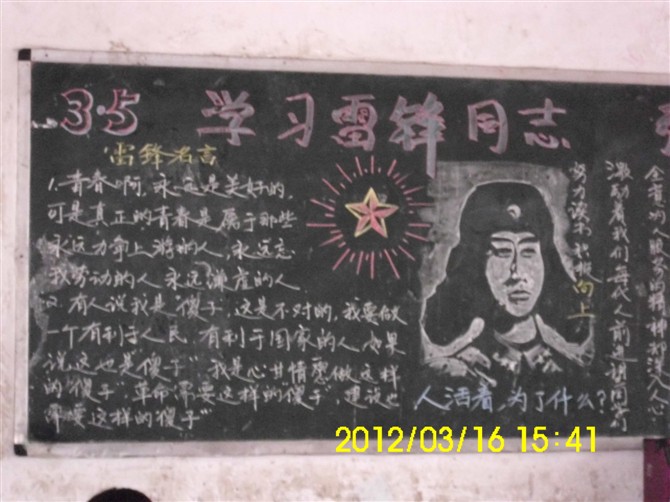 3·5 学习雷锋同志
雷锋名言
1.青春啊,永远是美好的,
可是真正的青春是属于那些
永远力争上游的人,永远忘
我劳动的人 永远谦虚的人.
2.有人说我是"傻子",这是不对的,我要做
一个有利于人民,有利于国家的人,如果
说这也是"傻子",我是心甘情愿做这样
的"傻子",革命需要这样的"傻子",建设也
需要这样的"傻子"
人活着,为了什么?
努力读书 积极向上
激励着我们每代人前进 请同学们
全省 人 的精神 深入人心
2012/03/16 15:41